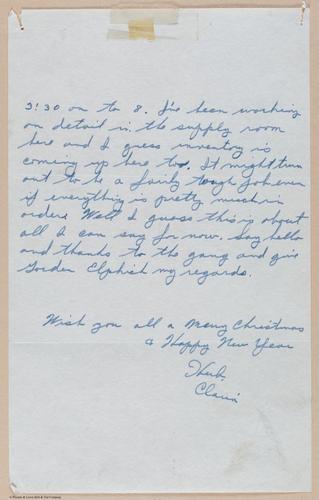 3:30 on to 8. I've been working
on detail in the supply room
here and I guess inventory is
coming up here too. It might turn
out to be a fairly tough job even
if everything is pretty much in
order. Well I guess this is about
all I can say for now. Say hello
and thanks to the gang and give
Gordon my regards.
Wish you all a Merry Christmas
& Happy New Year
Herb